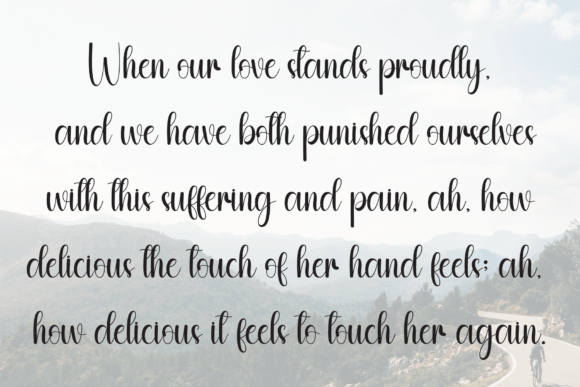 When our love stands proudly,
and we have both punished ourselves
with this suffering and pain, ah, how
delicious the touch of her hand feels; ah,
how delicious it feels to touch her again.